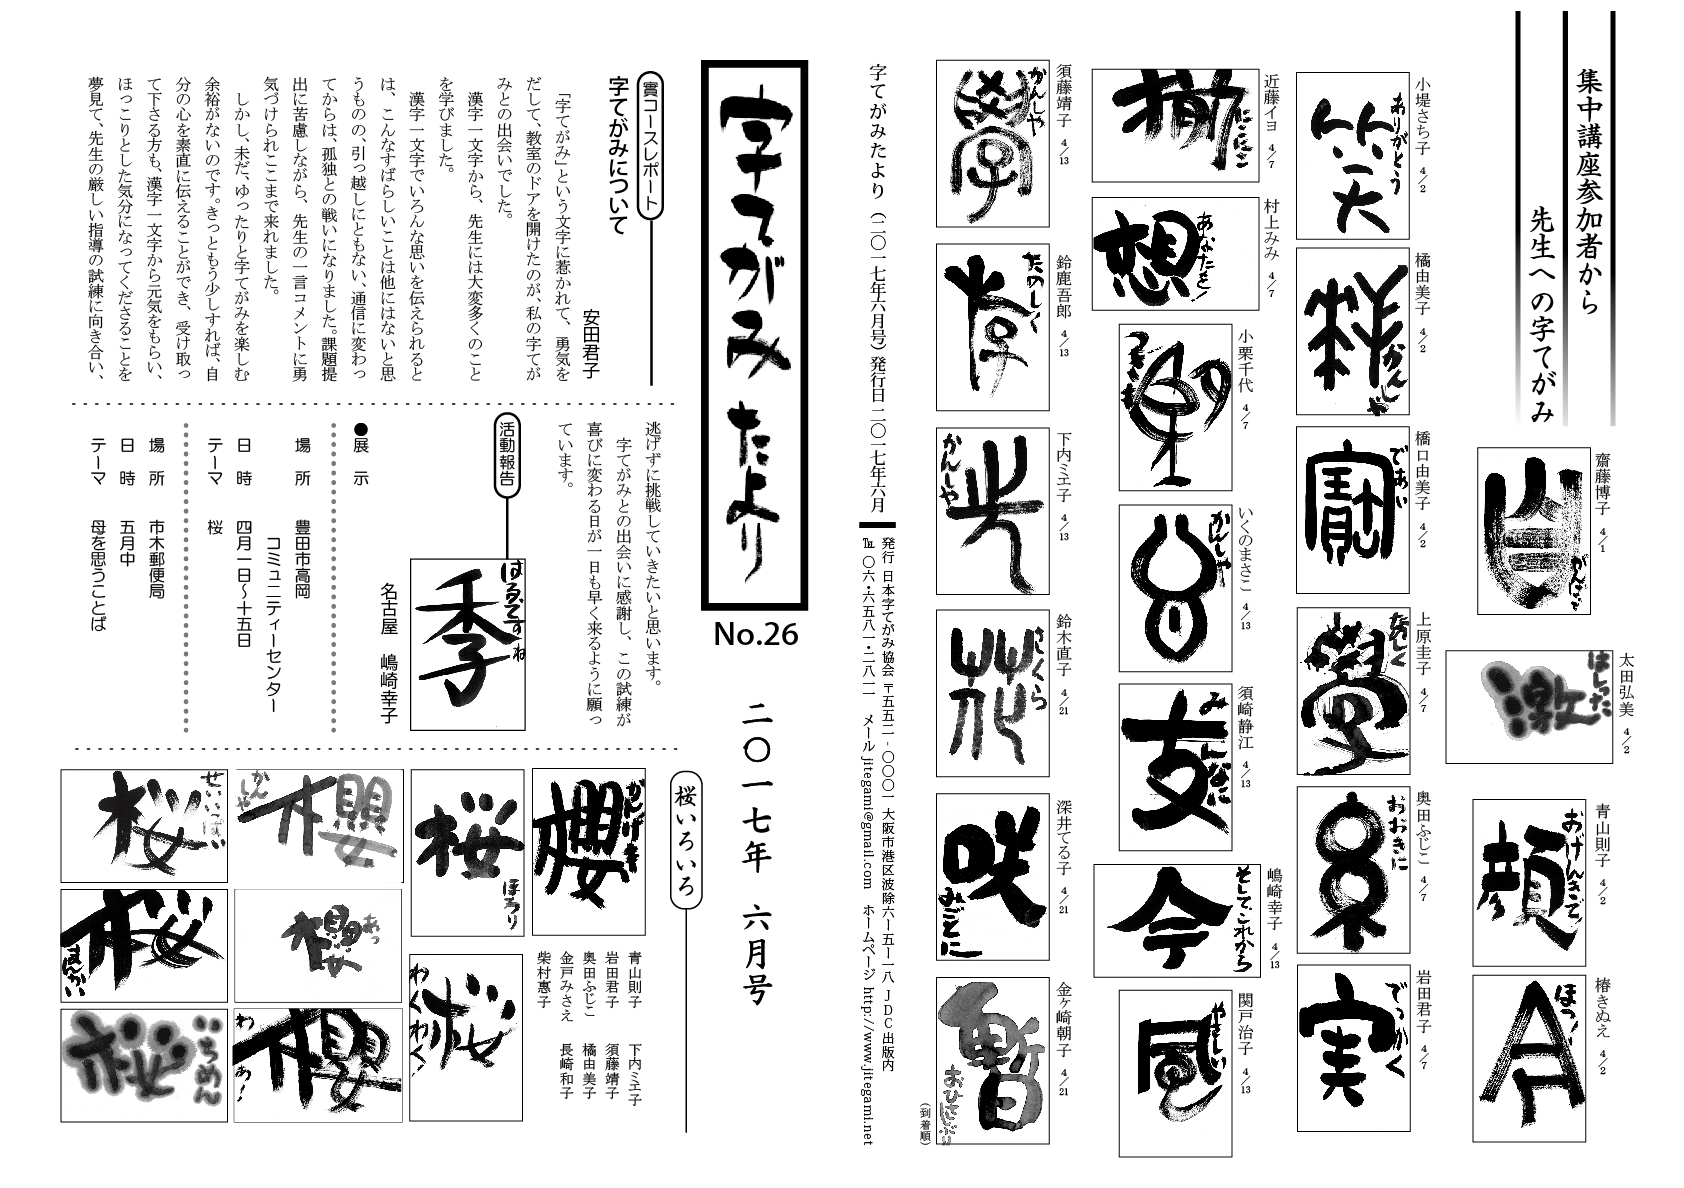 集中講座参加者から
先生への字てがみ
齋藤博子 4/1
がんばって
太田弘美 4/2
激
はしった
青山則子 4/2
顔
おげんきで
椿きぬえ 4/2
ほっ!
小堤さち子 4/2
笑
ありがとう
橘由美子 4/2
かんしゃ
橋口由美子 4/2
寶
であい
上原圭子 4/7
學
たのしく
奥田ふじこ 4/7
おおきに
岩田君子 4/7
実
でっかく
近藤イヨ 4/7
揃
にこにこ
村上みみ 4/7
想
あなたを!
小栗千代 4/7
いくのまさこ 4/13
かんしゃ
須崎静江 4/13
友
みんなに
嶋崎幸子 4/13
今
そしてこれから
関戸治子 4/13
風
やさしい
須藤靖子 4/13
學
かんしゃ
鈴鹿吾郎 4/13
たのしく
下内ミヱ子 4/13
かんしゃ
鈴木直子 4/21
さくら
深井てる子 4/21
咲
みごとに
金ヶ崎朝子 4/21
暫
おひさしぶり
(到着順)
字てがみたより(二〇一七年六月号)発行日 二〇一七年六月
発行 日本字てがみ協会 〒五五二-〇〇〇一 大阪市港区波除六ー五ー一八 JDC出版内
℡ 〇六・六五八一・二八一一 メール jitegami@gmail.com ホームページ http://www.jitegami.net
字てがみたより
No.26
二〇一七年 六月号
實コースレポート
字てがみについて
安田君子
「字てがみ」という文字に惹かれて、勇気を
だして、教室のドアを開けたのが、私の字てが
みとの出会いでした。
漢字一文字から、先生には大変多くのこと
を学びました。
漢字一文字でいろんな思いを伝えられると
は、こんなすばらしいことは他にはないと思
うものの、引っ越しにともない、通信に変わっ
てからは、孤独との戦いになりました。課題提
出に苦慮しながら、先生の一言コメントに勇
気づけられここまで来れました。
しかし、未だ、ゆったりと字てがみを楽しむ
余裕がないのです。きっともう少しすれば、自
分の心を素直に伝えることができ、受け取っ
て下さる方も、漢字一文字から元気をもらい、
ほっこりとした気分になってくださることを
夢見て、先生の厳しい指導の試練に向き合い、
逃げずに挑戦していきたいと思います。
字てがみとの出会いに感謝し、この試練が
喜びに変わる日が一日も早く来るように願っ
ています。
活動報告
季
はるですね
名古屋 嶋崎幸子
●展 示
場 所 豊田市高岡
コミュニティーセンター
日 時 四月一日〜十五日
テーマ 桜
場 所 市木郵便局
日 時 五月中
テーマ 母を思うことば
桜いろいろ
櫻
かんげき
桜
ほろり
桜
わくわく!
櫻
かんしゃ
櫻
あっ
櫻
わぁ!
桜
せいいっぱい
桜
まんかい
桜
いちめん
青山則子 下内ミヱ子
岩田君子 須藤靖子
奥田ふじこ 橘由美子
金戸みさえ 長崎和子
柴村惠子